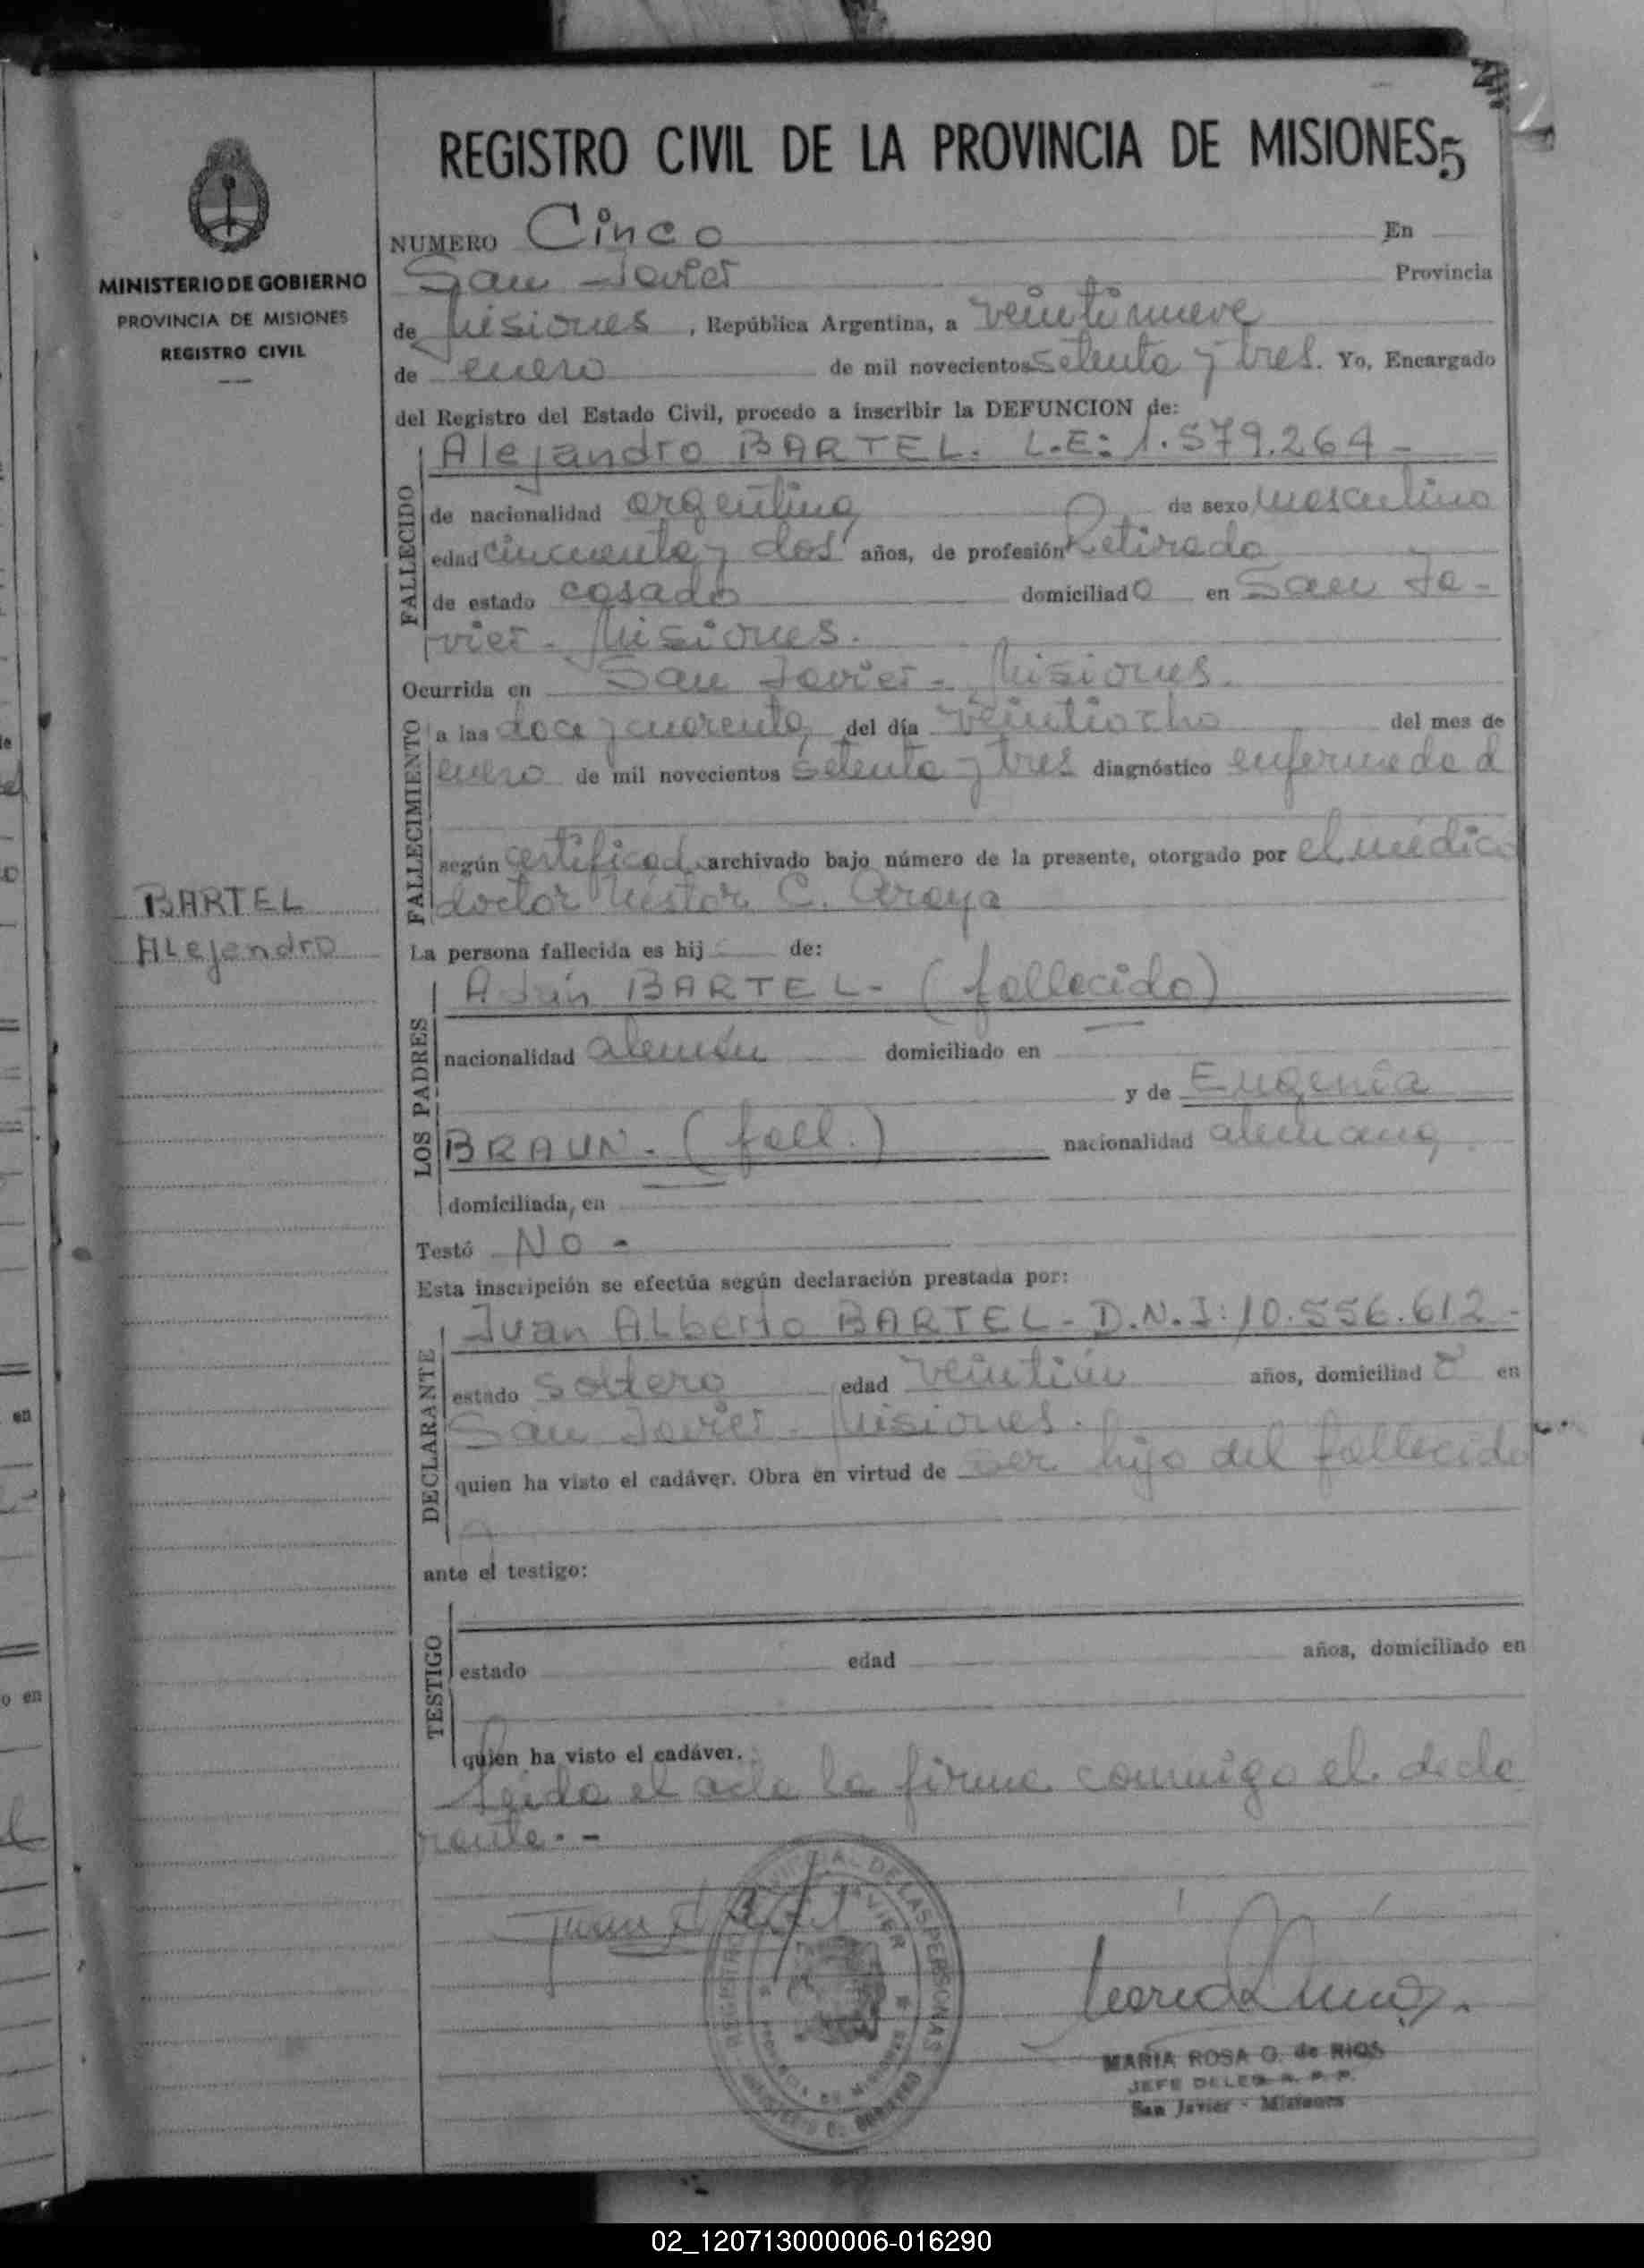 REGISTRO CIVIL DE LA PROVINCIA DE MISIONES 5
MINISTERIO DE GOBIERNO
PROVINCIA DE MISIONES
REGISTRO CIVIL
BARTEL
Alejandro
NUMERO Cinco En
San Javier Provincia
de Misiones, República Argentina, a veintinueve
de enero de mil novecientos setenta y tres. Yo, Encargado
del Registro del Estado Civil, procedo a inscribir la DEFUNCION de:
Alejandro BARTEL. L.E: 1.579.264 -
FALLECIDO
de nacionalidad argentina de sexo masculino
edad cincuenta y dos años, de profesión Retirado
de estado casado domiciliado en San Ja-
vier - Misiones.
Ocurrida en San Javier - Misiones.
FALLECIMIENTO
a las doce y cuarenta, del día veintiocho del mes de
enero de mil novecientos setenta y tres diagnóstico enfermedad
según certificad archivado bajo número de la presente, otorgado por el médico
doctor Néstor C. Araya
La persona fallecida es hij de:
LOS PADRES
Adán BARTEL - (fallecido)
nacionalidad alemán domiciliado en —
y de Eugenia
BRAUN - (fall.) nacionalidad alemana
domiciliada, en
Testó No -
Esta inscripción se efectúa según declaración prestada por:
DECLARANTE
Juan Alberto BARTEL - D.N.I: 10.556.612 -
estado soltero edad veintiún años, domiciliad o en
San Javier - Misiones.
quien ha visto el cadáver. Obra en virtud de ser hijo del fallecido
ante el testigo:
TESTIGO
estado edad años, domiciliado en
quien ha visto el cadáver.
Leida el acta la firma conmigo el decla
rante. -
Juan A Bartel
REGISTRO PROVINCIAL DE LAS PERSONAS
SAN JAVIER
PROVINCIA DE MISIONES
MINISTERIO DE GOBIERNO
MARIA ROSA G. de RIOS
JEFE DELEG. R. P. P.
San Javier - Misiones
02_120713000006-016290